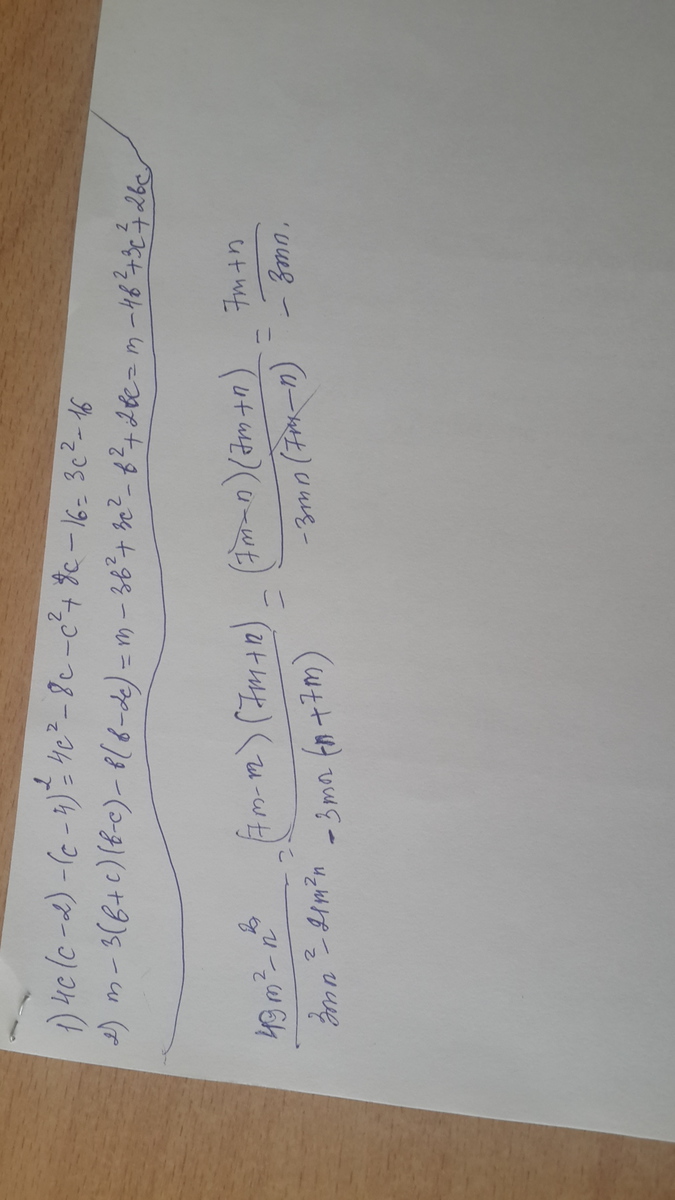 1) 4c(c-2)-(c-4)²=4c²-8c-c²+8c-16=3c²-16
2) m-3(b+c)(b-c)-b(b-2c)=m-3b²+3c²-b²+2bc=m-4b²+3c²+2bc
49m²-n² / 3mn²-21m²n = (7m-n)(7m+n) / -3mn(-n+7m) = (7m-n)(7m+n) / -3mn(7m-n) = 7m+n / -3mn.